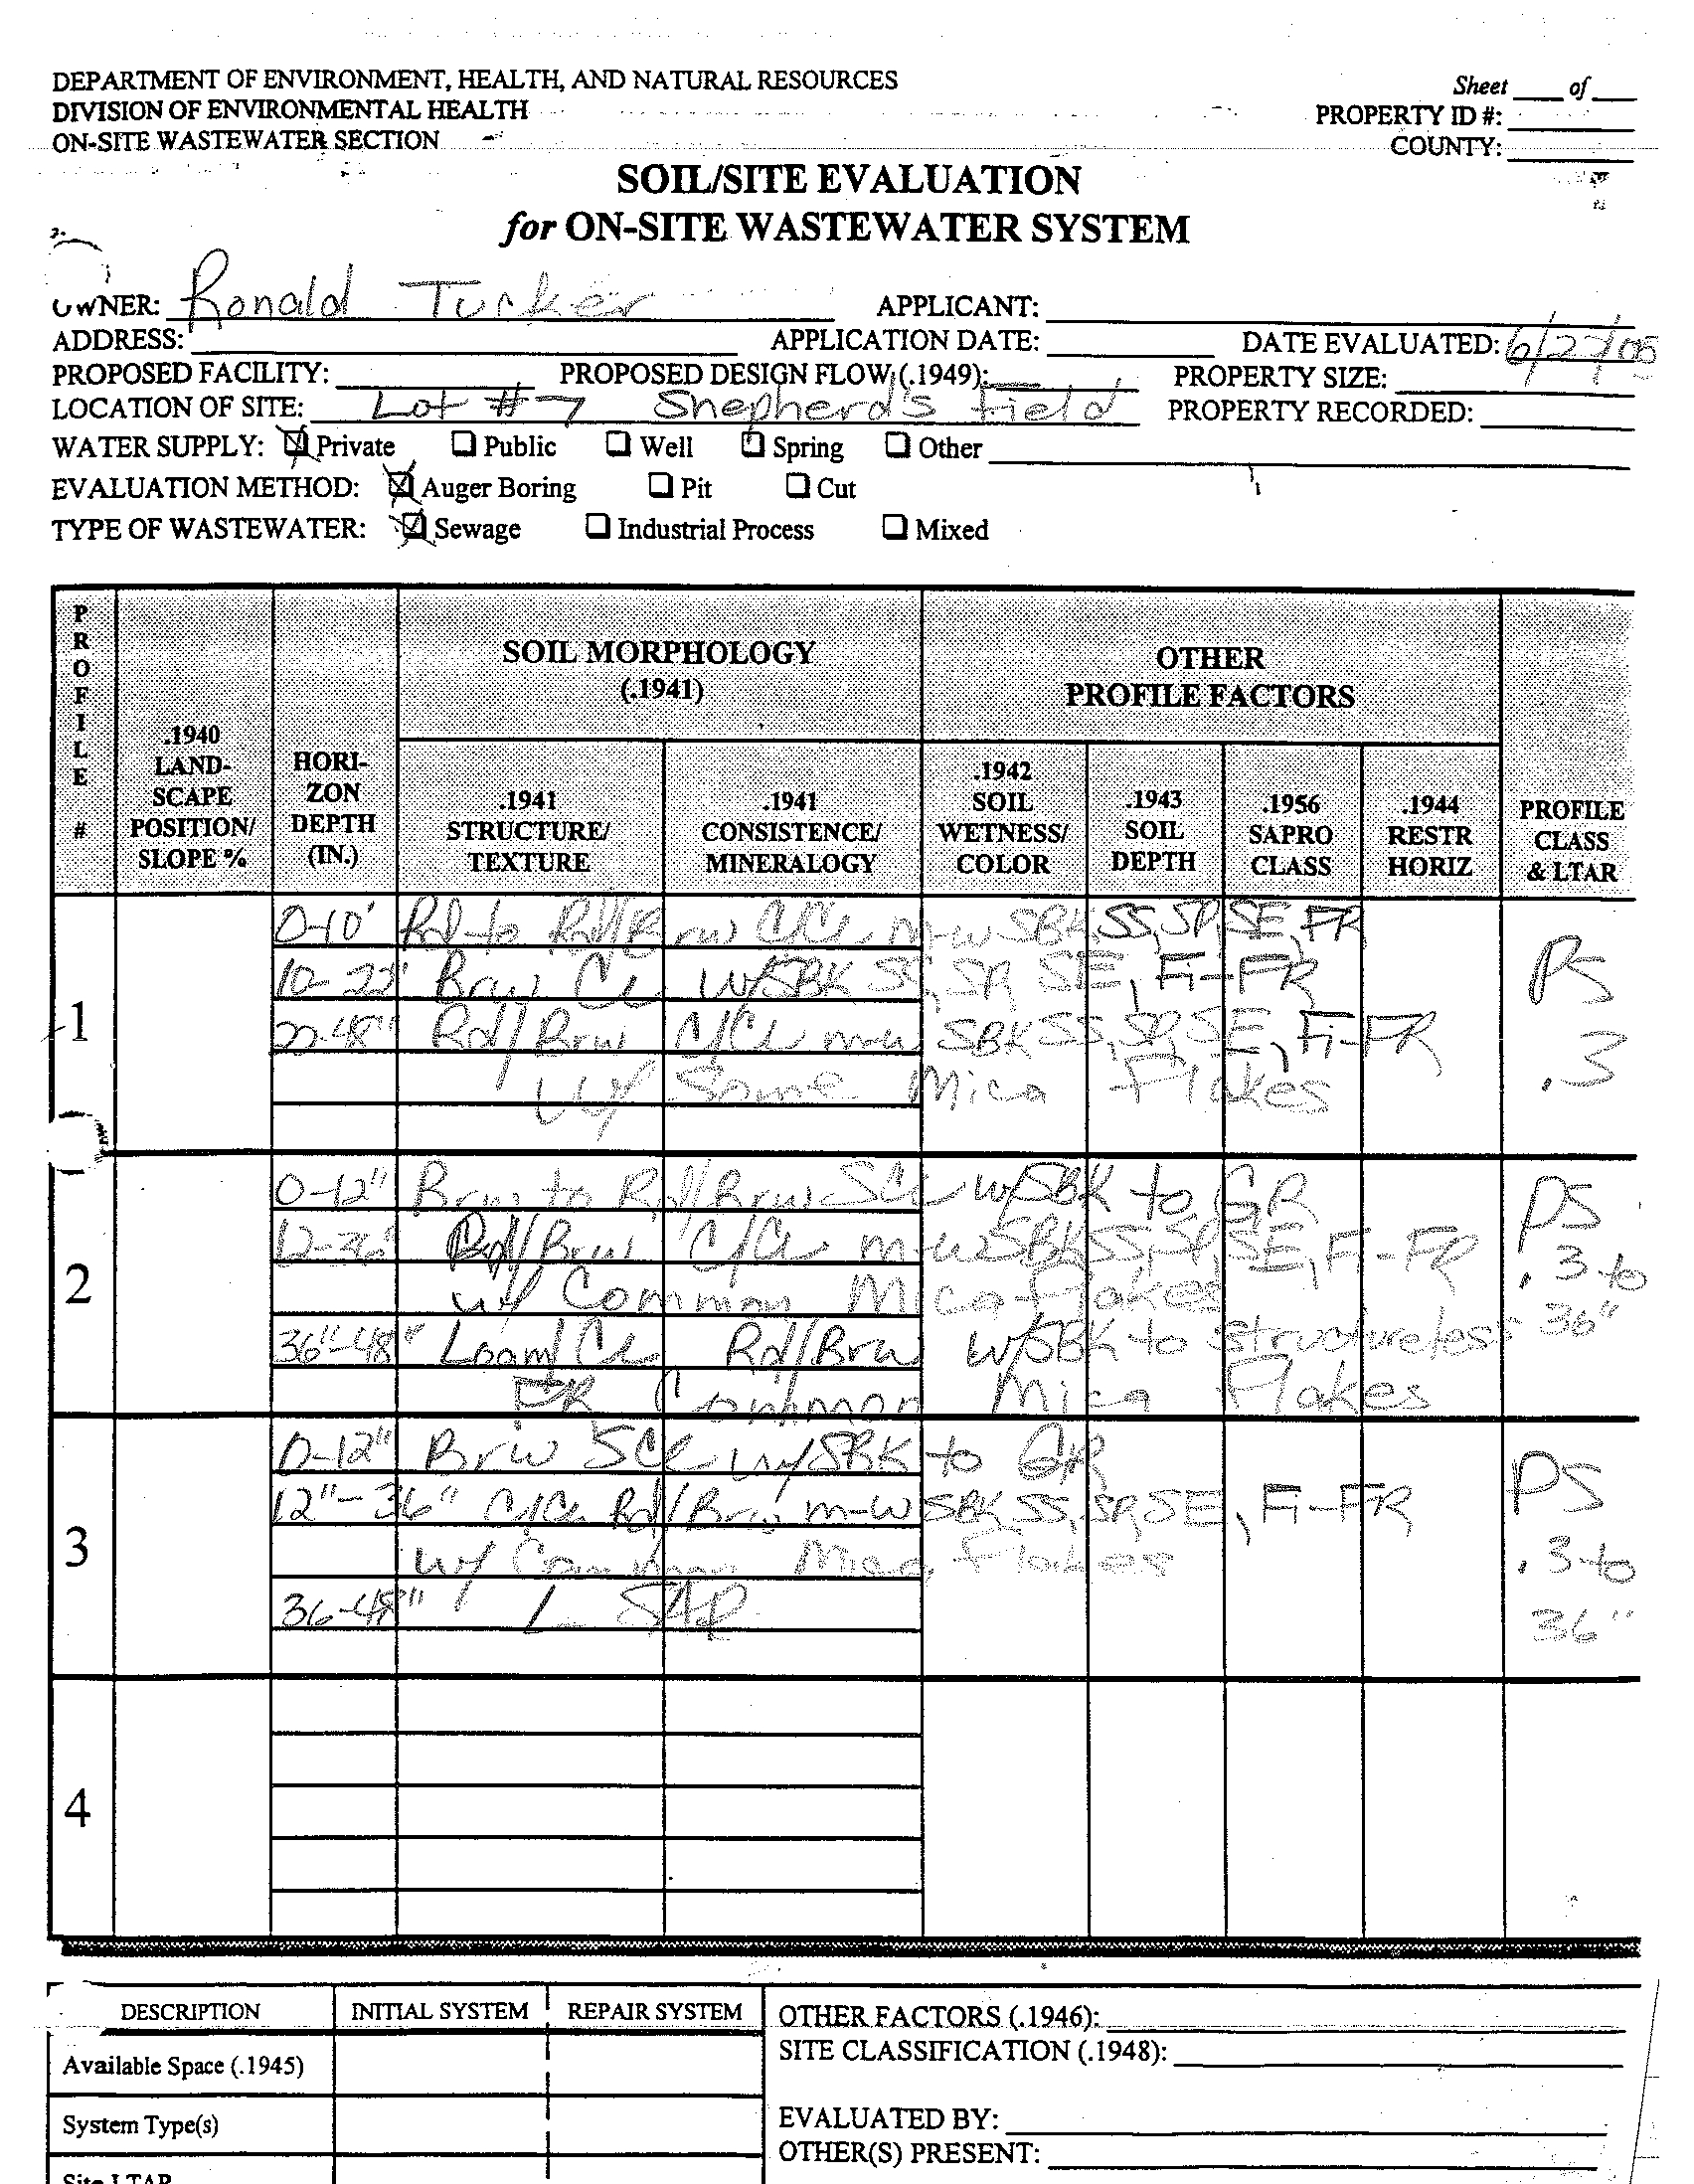 DEPARTMENT OF ENVIRONMENT, HEALTH, AND NATURAL RESOURCES
Sheet ____ of ____
DIVISION OF ENVIRONMENTAL HEALTH
PROPERTY ID #:
ON-SITE WASTEWATER SECTION
COUNTY:
SOIL/SITE EVALUATION
for ON-SITE WASTEWATER SYSTEM
OWNER: Ronald Tucker APPLICANT:
ADDRESS: APPLICATION DATE: DATE EVALUATED: 6/27/05
PROPOSED FACILITY: PROPOSED DESIGN FLOW (.1949): PROPERTY SIZE:
LOCATION OF SITE: Lot #7 Shepherd's Field PROPERTY RECORDED:
WATER SUPPLY: Private Public Well Spring Other
EVALUATION METHOD: Auger Boring Pit Cut
TYPE OF WASTEWATER: Sewage Industrial Process Mixed
PROFILE #
.1940 LAND-SCAPE POSITION/ SLOPE %
HORI-ZON DEPTH (IN.)
SOIL MORPHOLOGY (.1941)
.1941 STRUCTURE/ TEXTURE
.1941 CONSISTENCE/ MINERALOGY
OTHER PROFILE FACTORS
.1942 SOIL WETNESS/ COLOR
.1943 SOIL DEPTH
.1956 SAPRO CLASS
.1944 RESTR HORIZ
PROFILE CLASS & LTAR
1
0-10' Rd to Rd/Brw C/CL m-w SBK SS, SP, SE, FR
10-22" Brw CL w/SBK SS, SP, SE, Fi-FR
22-48" Rd/Brw C/CL m-w SBK SS, SP, SE, Fi-FR
w/ Some Mica Flakes
PS
.3
2
0-12" Brw to Rd/Brw SCL w/SBK to GR
12-36" Rd/Brw C/CL m-w SBK SS, SP, SE, Fi-FR
w/ Common Mica Flakes
36"-48" Loam/CL Rd/Brw w/SBK to structureless
FR Common Mica Flakes
PS
.3 to
36"
3
0-12" Brw SCL w/SBK to GR
12"-36" C/CL Rd/Brw m-w SBK SS, SP, SE, Fi-FR
w/ Common Mica Flakes
36-48" L SAP
PS
.3 to
36"
4
DESCRIPTION INITIAL SYSTEM REPAIR SYSTEM
Available Space (.1945)
System Type(s)
Site LTAR
OTHER FACTORS (.1946):
SITE CLASSIFICATION (.1948):
EVALUATED BY:
OTHER(S) PRESENT: